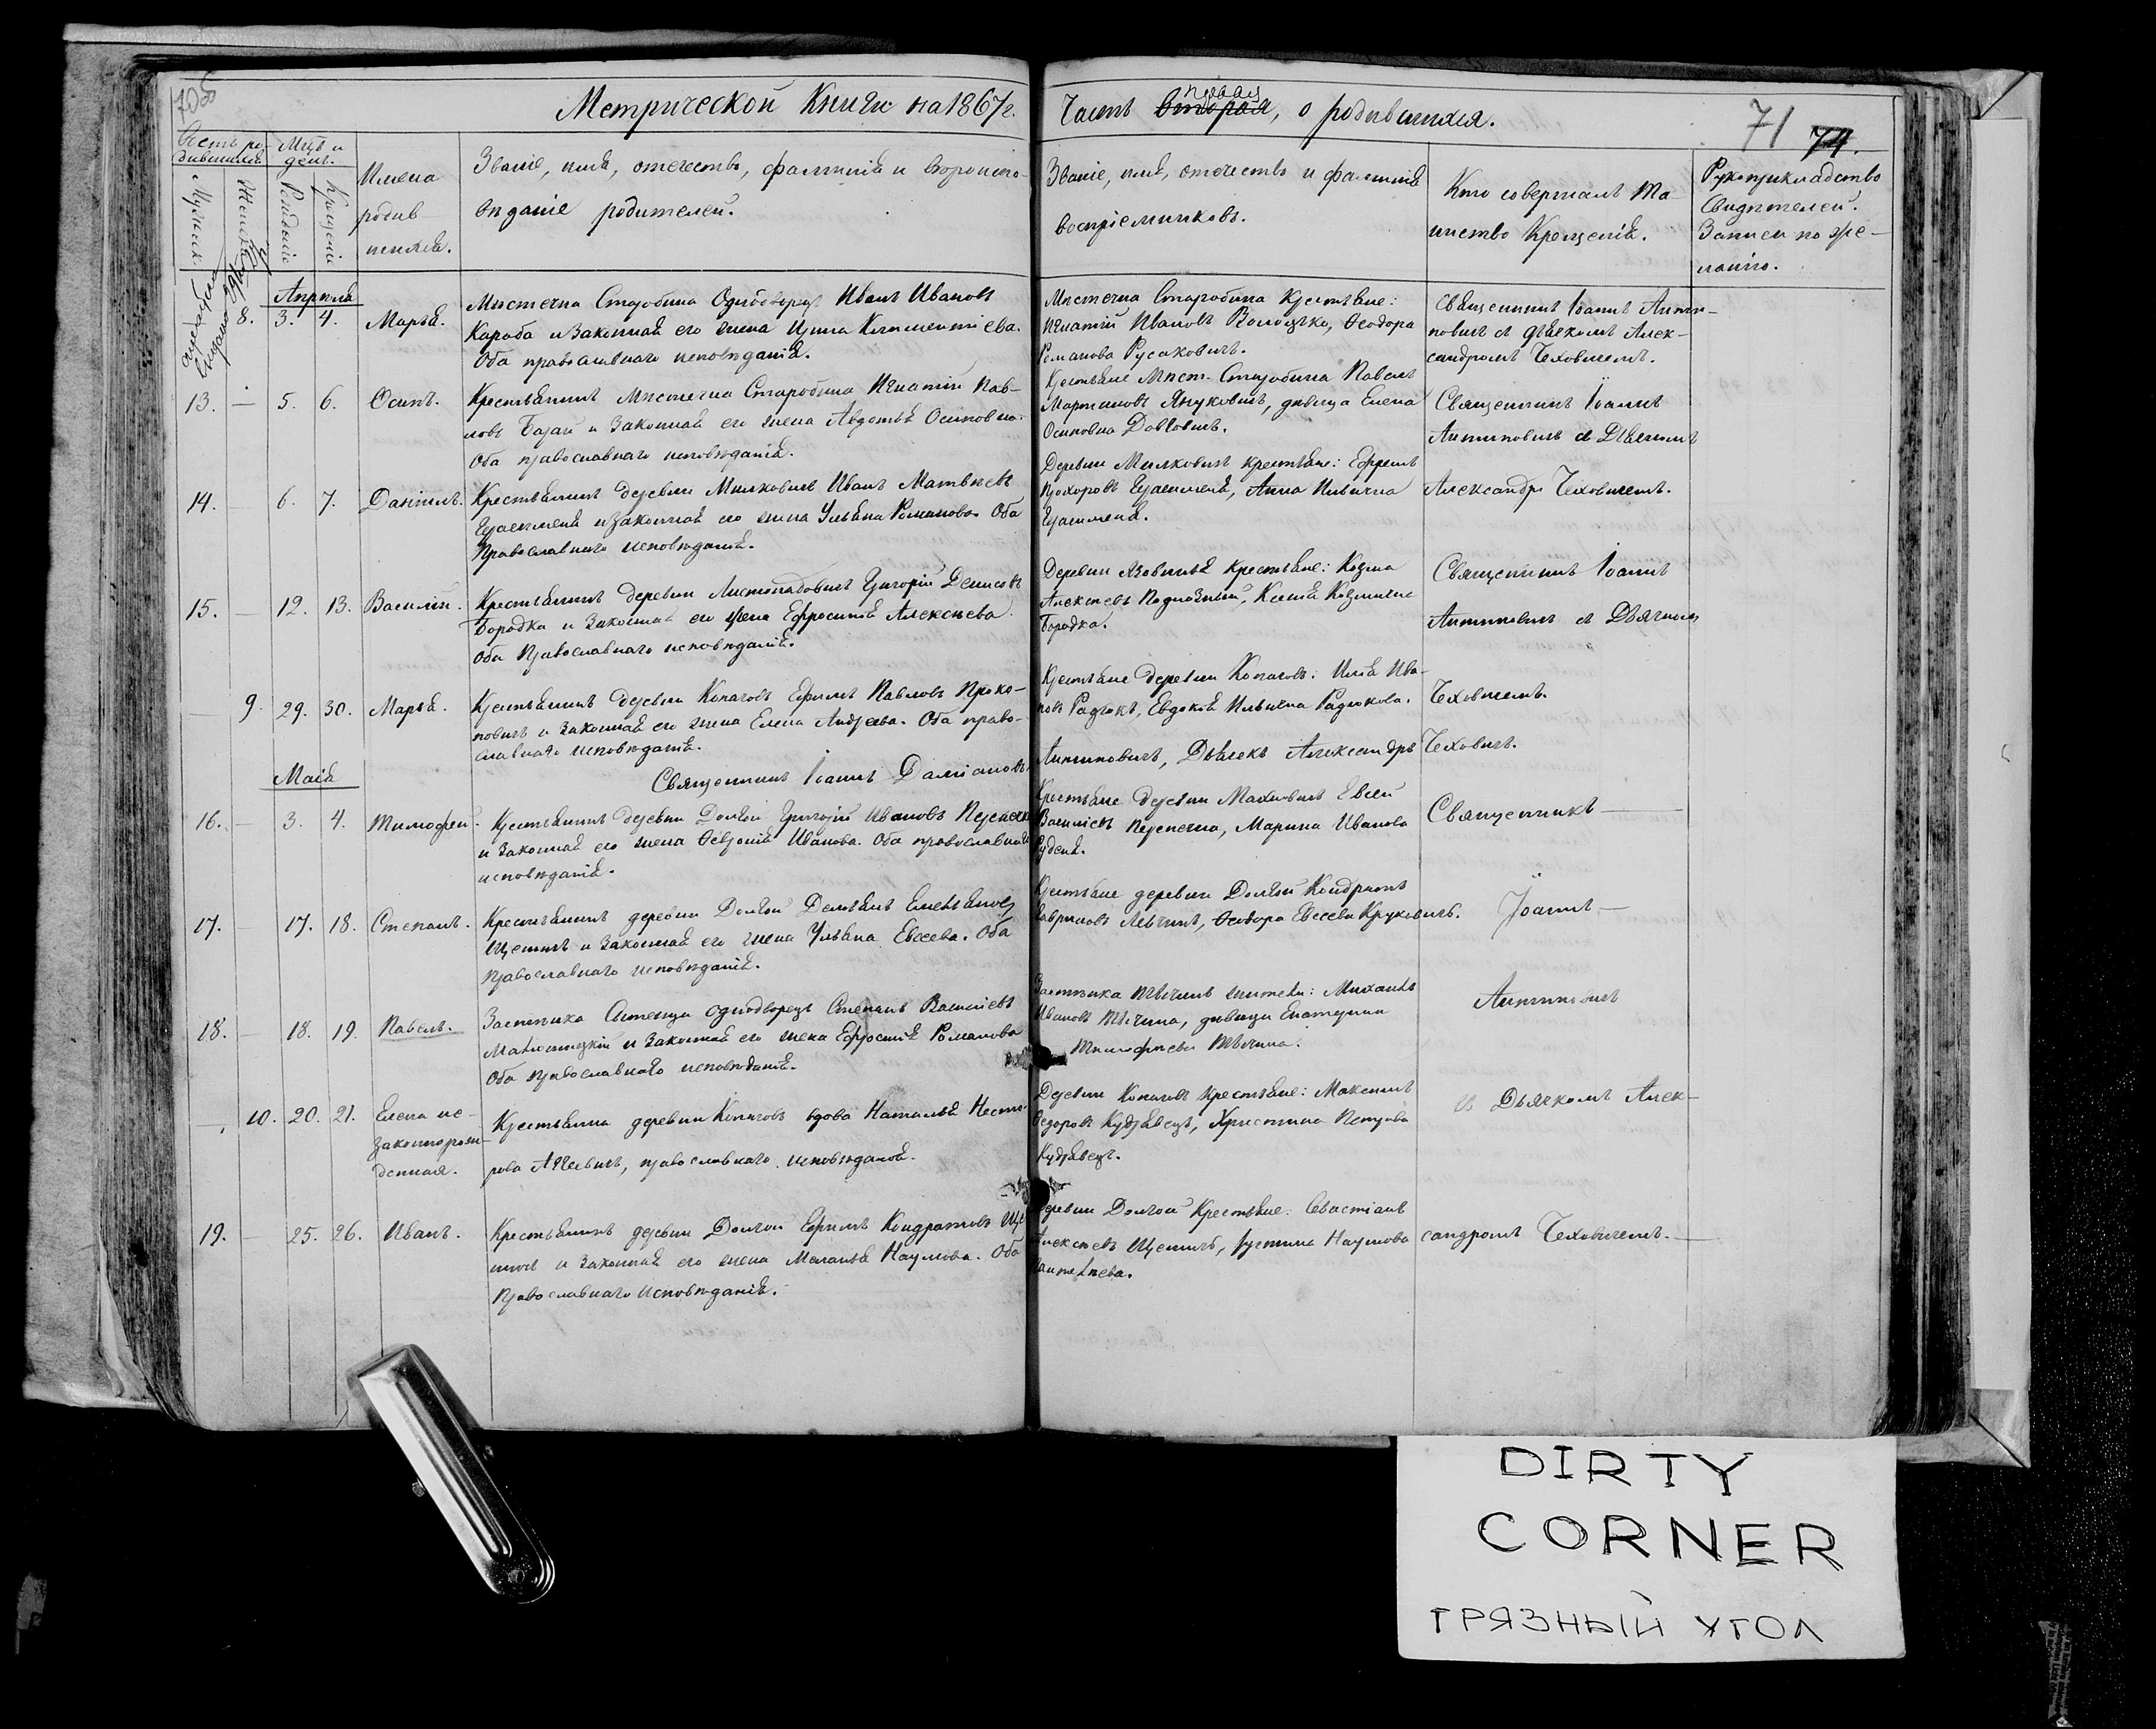 Метрической Книги на 1867 г.
Часть вторая первая, о родившихся.
71 74.
Мцъ и день.
Имена родившихся.
Званіе, имя, отечество, фамилія и вѣроисповѣданіе родителей.
Званіе, имя, отечество и фамилія воспріемниковъ.
Кто совершалъ Таинство Крещенія.
Рукоприкладство Свидѣтелей. Записи по желанію.
Апрѣля
8. 3. 4. Марья.
Мѣстечка Старобина Однодворецъ Иванъ Ивановъ
и Законная его жена
Оба православнаго исповѣданія.
Мѣстечка Старобина Крестьяне:
Игнатій Ивановъ Ѳеодора
Романова Русаковичъ.
Священникъ Іоаннъ Анти-
повичъ съ дьячкомъ Алек-
сандромъ Чеховичемъ.
13. — 5. 6. Осипъ.
Крестьянинъ Мѣстечка Старобина Игнатій Пав-
ловъ и Законная его жена Авдотья Осиповна.
Оба православнаго исповѣданія.
Крестьяне Мѣст. Старобина Павелъ
Януковичъ, дѣвица Елена
Осиповна
Священникъ Іоаннъ
Антиповичъ съ Дьячкомъ
14. — 6. 7. Даніилъ.
Крестьянинъ деревни Милковичъ Иванъ Матвѣевъ
Герасименя и законная его жена Ульяна Романова. Оба
Православнаго исповѣданія.
Деревни Милковичъ крестьяне: Ефремъ
Прохоровъ Герасименя, Анна Ильична
Герасименя.
Александромъ Чеховичемъ.
15. — 12. 13. Василій.
Крестьянинъ деревни Листопадовичъ Григорій Денисовъ
Бородка и Законная его жена Ефросинія Алексѣева.
Оба Православнаго исповѣданія.
Деревни крестьяне: Козма
Алексѣевъ
Бородка.
Священникъ Іоаннъ
Антиповичъ съ Дьячкомъ
9. 29. 30. Марья.
Крестьянинъ деревни Копачовъ Ефимъ Павловъ Проко-
повичъ и Законная его жена Елена Андреева. Оба право-
славнаго исповѣданія.
Крестьяне деревни Копачовъ: Илья Ива-
новъ Радюкъ, Евдокія Ильична Радюкова.
Чеховичемъ.
Священникъ Іоаннъ Даміановъ Антиповичъ, Дьячекъ Александръ Чеховичъ.
Маія
16. — 3. 4. Тимофей.
Крестьянинъ деревни Долгой Григорій Ивановъ
и Законная его жена Ѳевронія Иванова. Оба православнаго
исповѣданія.
Крестьяне деревни Евсей
Василіевъ Марина Иванова
Священникъ —
17. 17. 18. Степанъ.
Крестьянинъ деревни Долгой Демьянъ
и Законная его жена Ульяна Евсеева. Оба
Православнаго исповѣданія.
Крестьяне деревни Долгой Кондратъ
Ѳеодора Евсеева Круковичъ.
Іоаннъ —
18. — 18. 19. Павелъ.
Застѣнка однодворецъ Степанъ Василіевъ
и Законная его жена Ефросинія Романова
Оба православнаго исповѣданія.
Застѣнка жители: Михаилъ
Ивановъ дѣвица Екатерина
Тимофѣева
Антиповичъ
10. 20. 21. Елена не-
законнорож-
денная.
Крестьянка деревни Копачовъ вдова Наталья Несте-
рова православнаго исповѣданія.
Деревни Копачовъ Крестьяне: Максимъ
Ѳедоровъ Кудравецъ, Христина Петрова
Кудравецъ.
съ Дьячкомъ Алек-
19. — 25. 26. Иванъ.
Крестьянинъ деревни Долгой Ефимъ Кондратовъ
и Законная его жена Меланья Наумова. Оба
Православнаго исповѣданія.
Деревни Долгой Крестьяне: Севастіанъ
Алексѣевъ Юстина Наумова
сандромъ Чеховичемъ. —
DIRTY
CORNER
ГРЯЗНЫЙ УГОЛ